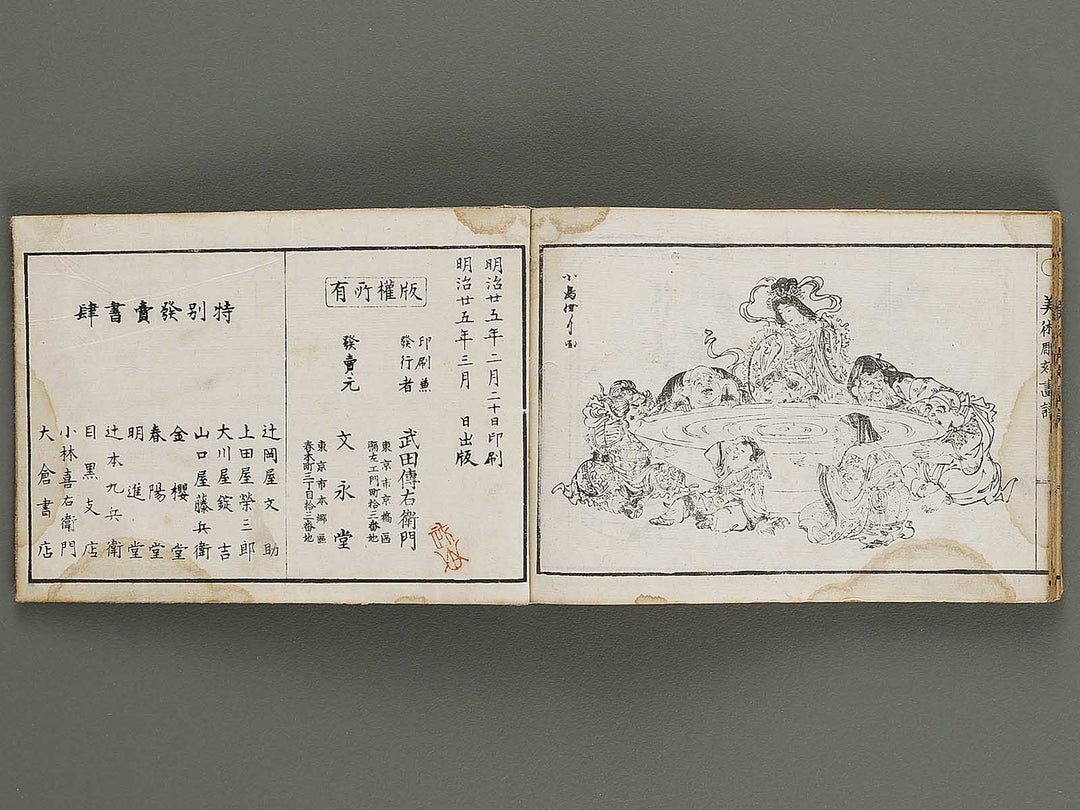 美術彫刻畫譜
明治廿五年二月二十日印刷
明治廿五年三月　日出版
版權所有
印刷兼
發行者
武田傳右衛門
東京市京橋區
彌左エ門町拾三番地
發賣元
文永堂
東京市本郷區
春木町三丁目拾三番地
特別發賣書肆
辻岡屋文助
上田屋榮三郎
大川屋錠吉
山口屋藤兵衛
金櫻堂
春陽堂
明進堂
辻本九兵衛
目黒支店
小林喜右衛門
大倉書店